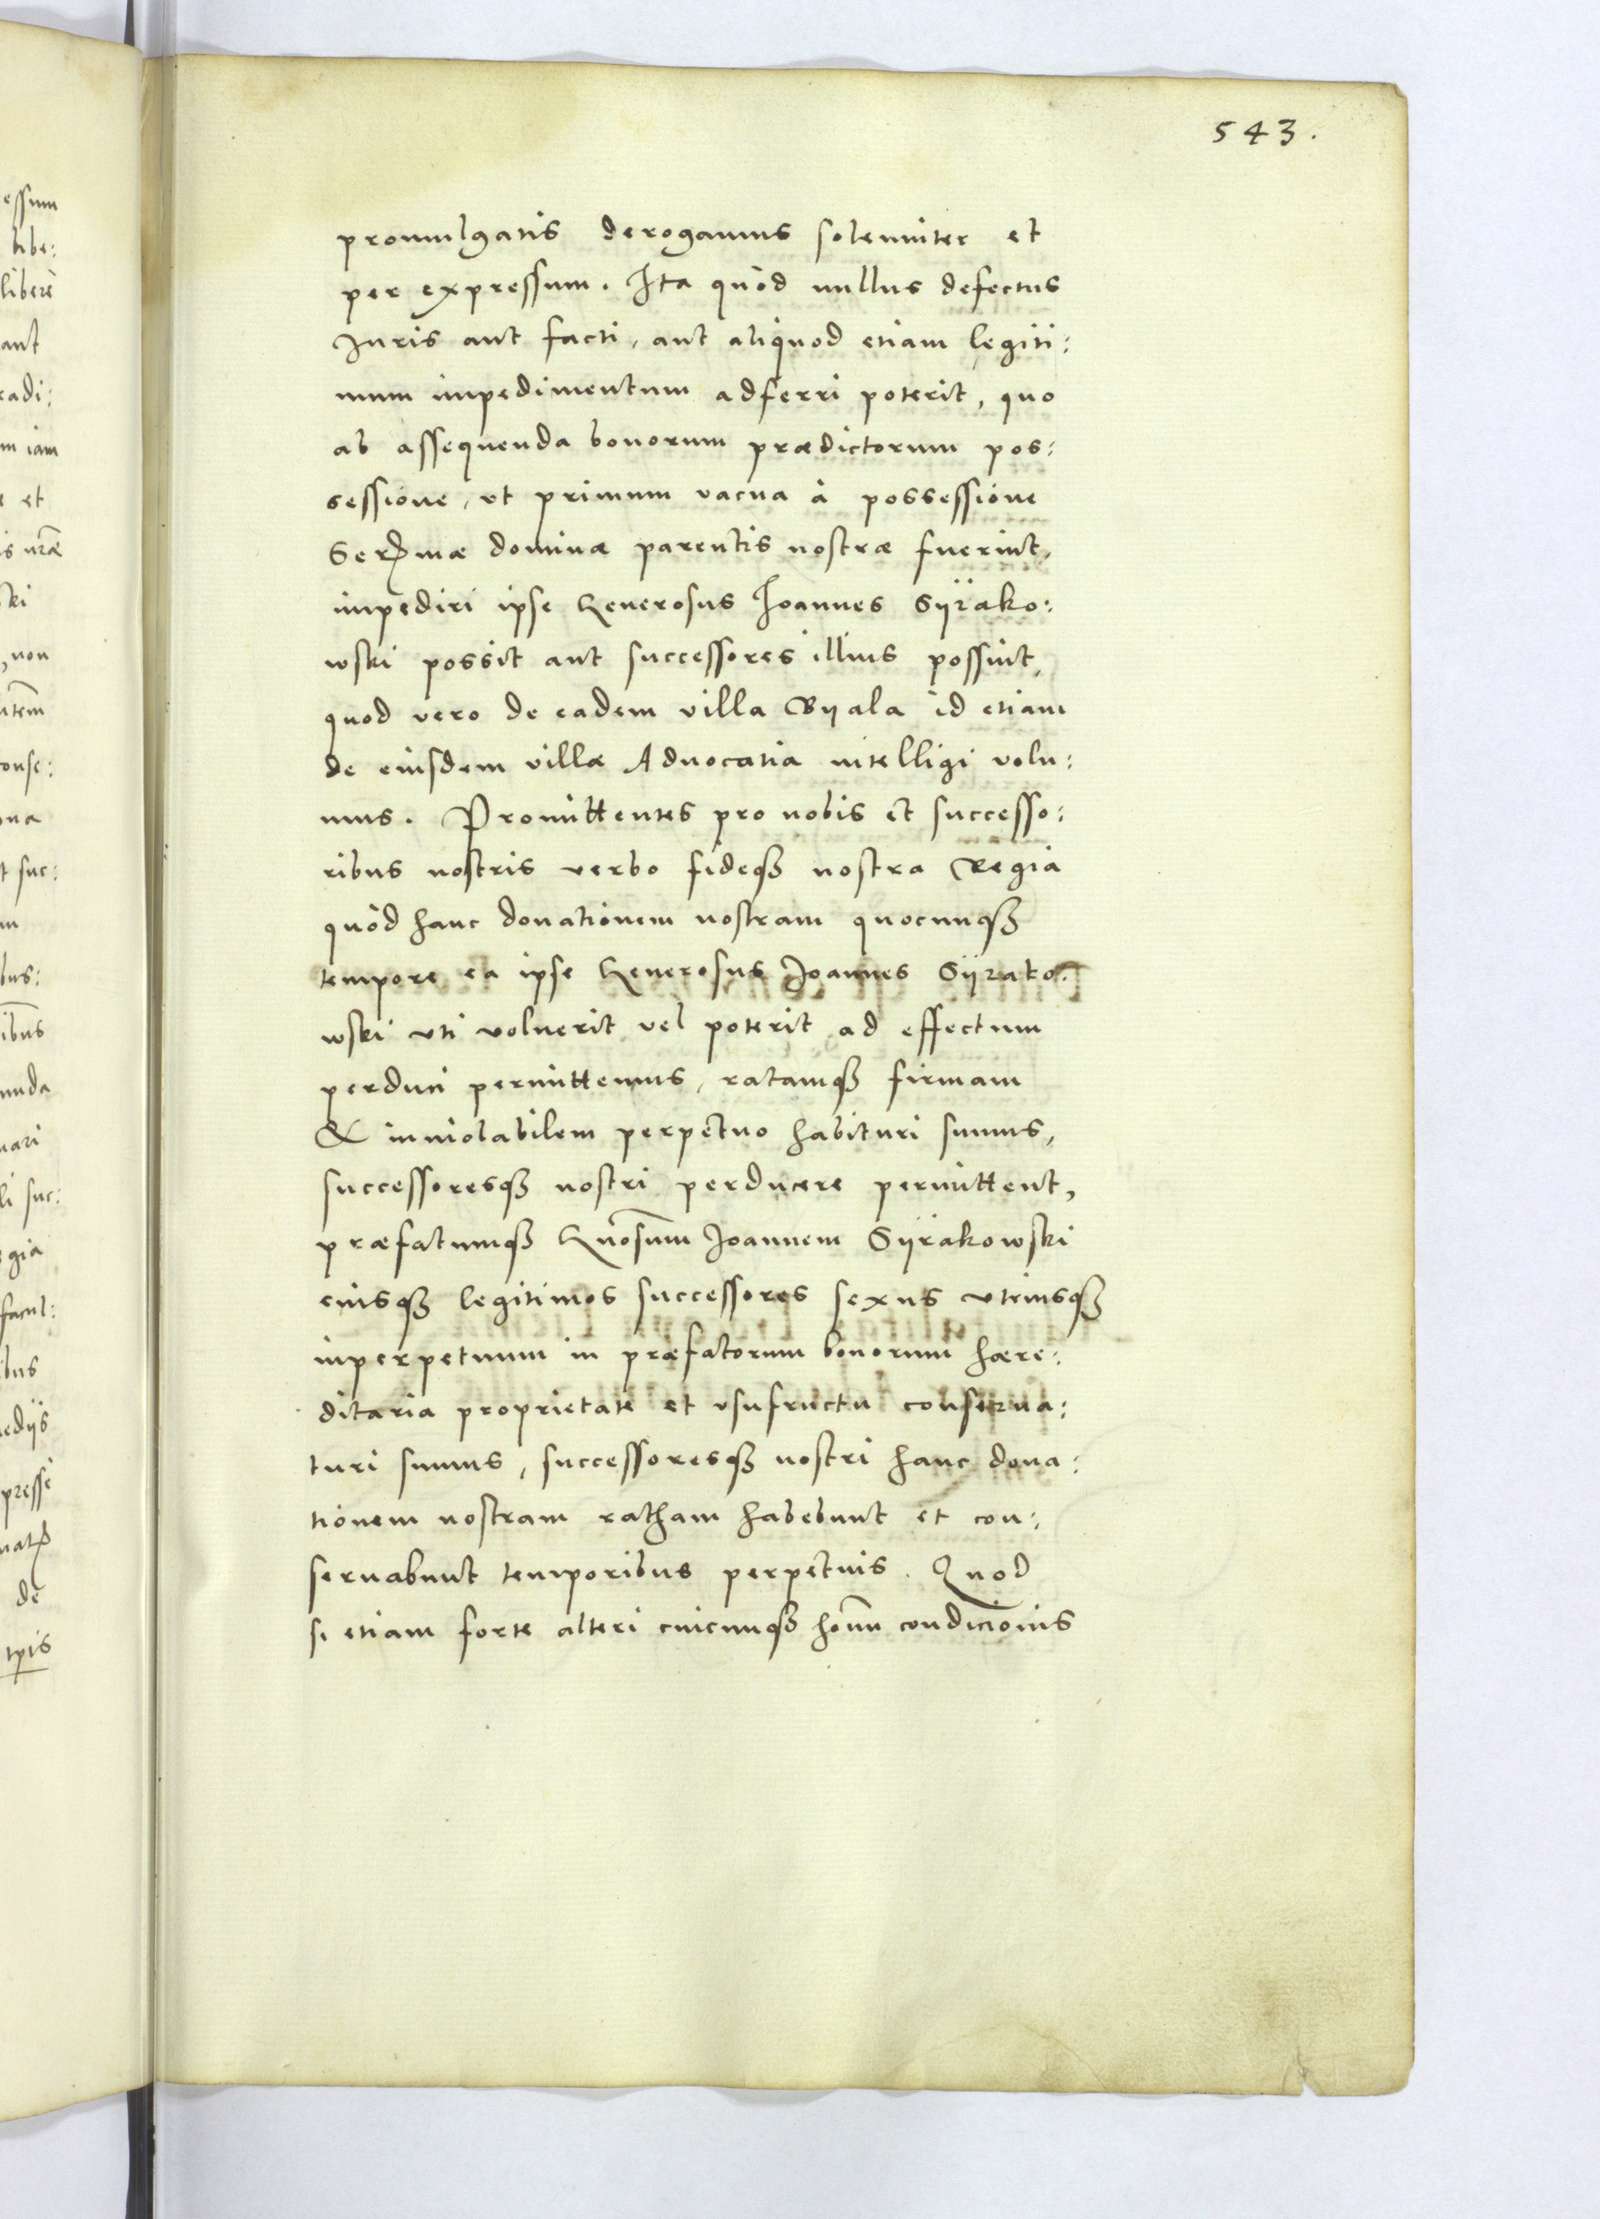 543.
promulgatis derogamus solemniter et
per expressum. Ita quòd nullus defectus
Iuris aut facti, aut aliquod etiam legiti:
mum impedimentum adferri poterit, quo
ab assequenda bonorum prædictorum pos:
sessione, ut primum vacua à possessione
dominæ parentis nostræ fuerint,
impediri ipse Generosus Joannes Sÿrako:
wski possit aut successores illius possint,
quod vero de eadem villa Byala id etiam
de eiusdem villæ Advocatia intelligi volu:
mus. Promittentes pro nobis et successo:
ribus nostris verbo fideq3 nostra Regia
quòd hanc donationem nostram quocunq3
tempore ea ipse Generosus Joannes Sÿrako:
wski uti voluerit vel poterit ad effectum
perduci permittemus, ratamq3 firmam
& inviolabilem perpetuo habituri sumus,
successoresq3 nostri perducere permittent,
præfatumq3 Gn̄osum Joannem Sÿrakowski
eiusq3 legitimos successores sexus utriusq3
inperpetuum in præfatorum bonorum hære:
ditaria proprietate et usufructu conserua:
turi sumus, successoresq3 nostri hanc dona:
tionem nostram ratham habebunt et con:
seruabunt temporibus perpetuis. Quod
si etiam forte alteri cuicunq3 hom̄ condicionis
essum
libe:
liberè
aut
radi:
m iam
et
ski
non
conse:
suc:
bus:
suc:
egia
facul:
ibus
edijs
de